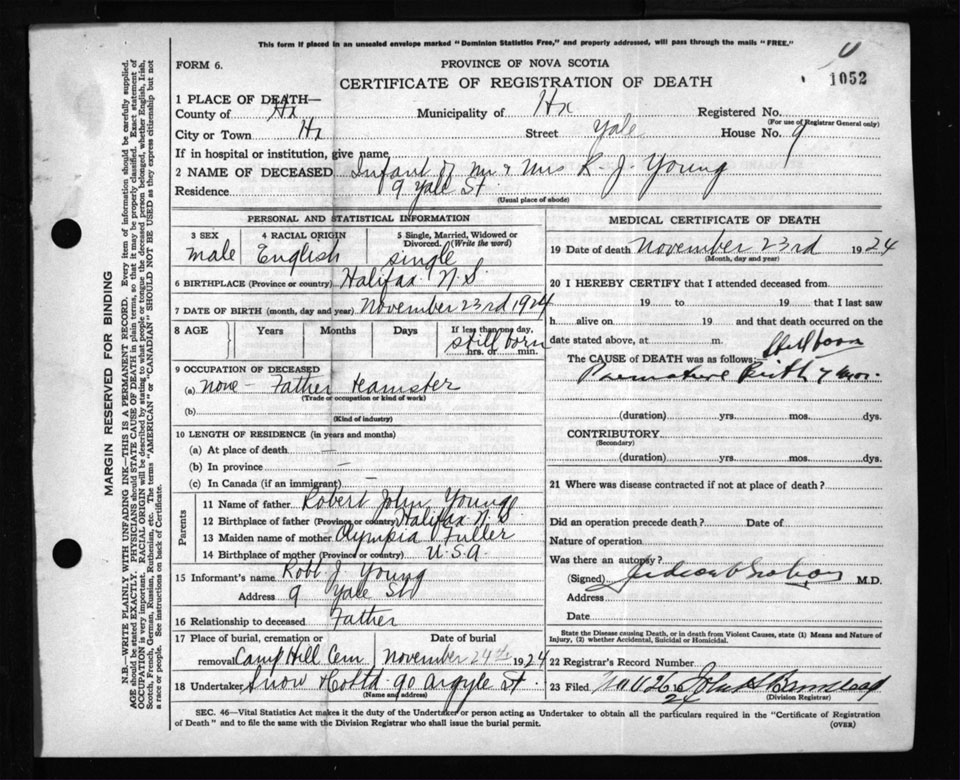 This form if placed in an unsealed envelope marked "Dominion Statistics Free," and properly addressed, will pass through the mails "FREE."
FORM 6.
PROVINCE OF NOVA SCOTIA
CERTIFICATE OF REGISTRATION OF DEATH
1052
1 PLACE OF DEATH—
County of Hx Municipality of Hx Registered No.
(For use of Registrar General only)
City or Town Hx Street Yale House No. 9
If in hospital or institution, give name
2 NAME OF DECEASED Infant of Mr & Mrs R. J. Young
Residence 9 Yale St.
(Usual place of abode)
PERSONAL AND STATISTICAL INFORMATION
3 SEX 4 RACIAL ORIGIN 5 Single, Married, Widowed or Divorced. (Write the word)
male English single
6 BIRTHPLACE (Province or country) Halifax N.S.
7 DATE OF BIRTH (month, day and year) November 23rd 1924
8 AGE Years Months Days If less than one day,
still born
hrs. or min.
9 OCCUPATION OF DECEASED
(a) none - Father teamster
(Trade or occupation or kind of work)
(b)
(Kind of industry)
10 LENGTH OF RESIDENCE (in years and months)
(a) At place of death —
(b) In province —
(c) In Canada (if an immigrant) —
Parents
11 Name of father Robert John Young
12 Birthplace of father (Province or country) Halifax N.S.
13 Maiden name of mother Olympia Fuller
14 Birthplace of mother (Province or country) U.S.A
15 Informant's name Robt J Young
Address 9 Yale St
16 Relationship to deceased Father
17 Place of burial, cremation or Date of burial
removal Camp Hill Cem November 24th 1924
18 Undertaker Snow & Co Ltd 90 Argyle St.
(Name and address)
MEDICAL CERTIFICATE OF DEATH
19 Date of death November 23rd 1924
(Month, day and year)
20 I HEREBY CERTIFY that I attended deceased from
19 to 19 that I last saw
h alive on 19 and that death occurred on the
date stated above, at m.
The CAUSE of DEATH was as follows: Stillborn
Premature Birth 7 mos.
(duration) yrs. mos. dys.
CONTRIBUTORY
(Secondary)
(duration) yrs. mos. dys.
21 Where was disease contracted if not at place of death?
Did an operation precede death? Date of
Nature of operation
Was there an autopsy?
(Signed) M.D.
Address
Date
State the Disease causing Death, or in death from Violent Causes, state (1) Means and Nature of
Injury, (2) whether Accidental, Suicidal or Homicidal.
22 Registrar's Record Number
23 Filed Nov 26 John
24
(Division Registrar)
SEC. 46—Vital Statistics Act makes it the duty of the Undertaker or person acting as Undertaker to obtain all the particulars required in the "Certificate of Registration
of Death" and to file the same with the Division Registrar who shall issue the burial permit.
(OVER)
MARGIN RESERVED FOR BINDING
N.B.—WRITE PLAINLY WITH UNFADING INK—THIS IS A PERMANENT RECORD. Every item of information should be carefully supplied.
AGE should be stated EXACTLY. PHYSICIANS should STATE CAUSE OF DEATH in plain terms, so that it may be properly classified. Exact statement of
OCCUPATION is very important. RACIAL ORIGIN will be described by stating to what people or tongue the deceased person belonged, whether English, Irish,
Scotch, French, German, Russian, Ruthenian, etc. The terms "AMERICAN" or "CANADIAN" SHOULD NOT BE USED as they express citizenship but not
a race or people. See instructions on back of Certificate.